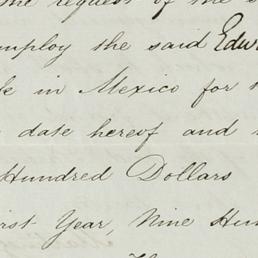 the request of the
employ the said Edw
in Mexico for
date hereof and
Hundred Dollars
First Year, Nine Hun